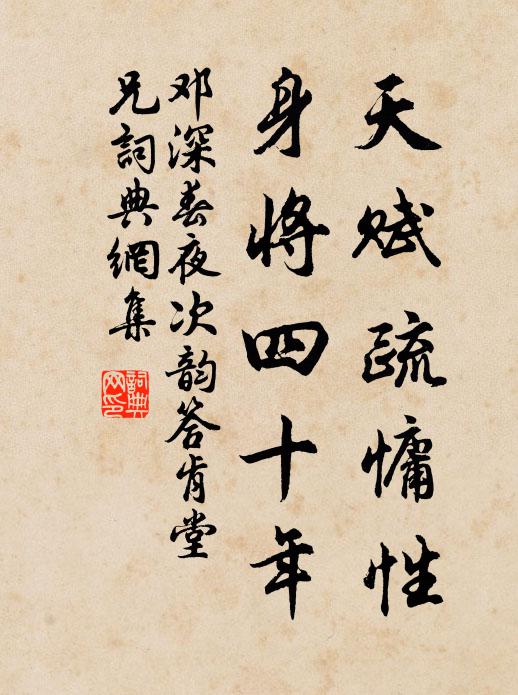 天赋疏慵性
身將四十年
邓深春夜次韵答肯堂
兄詞典網集
詞典网印